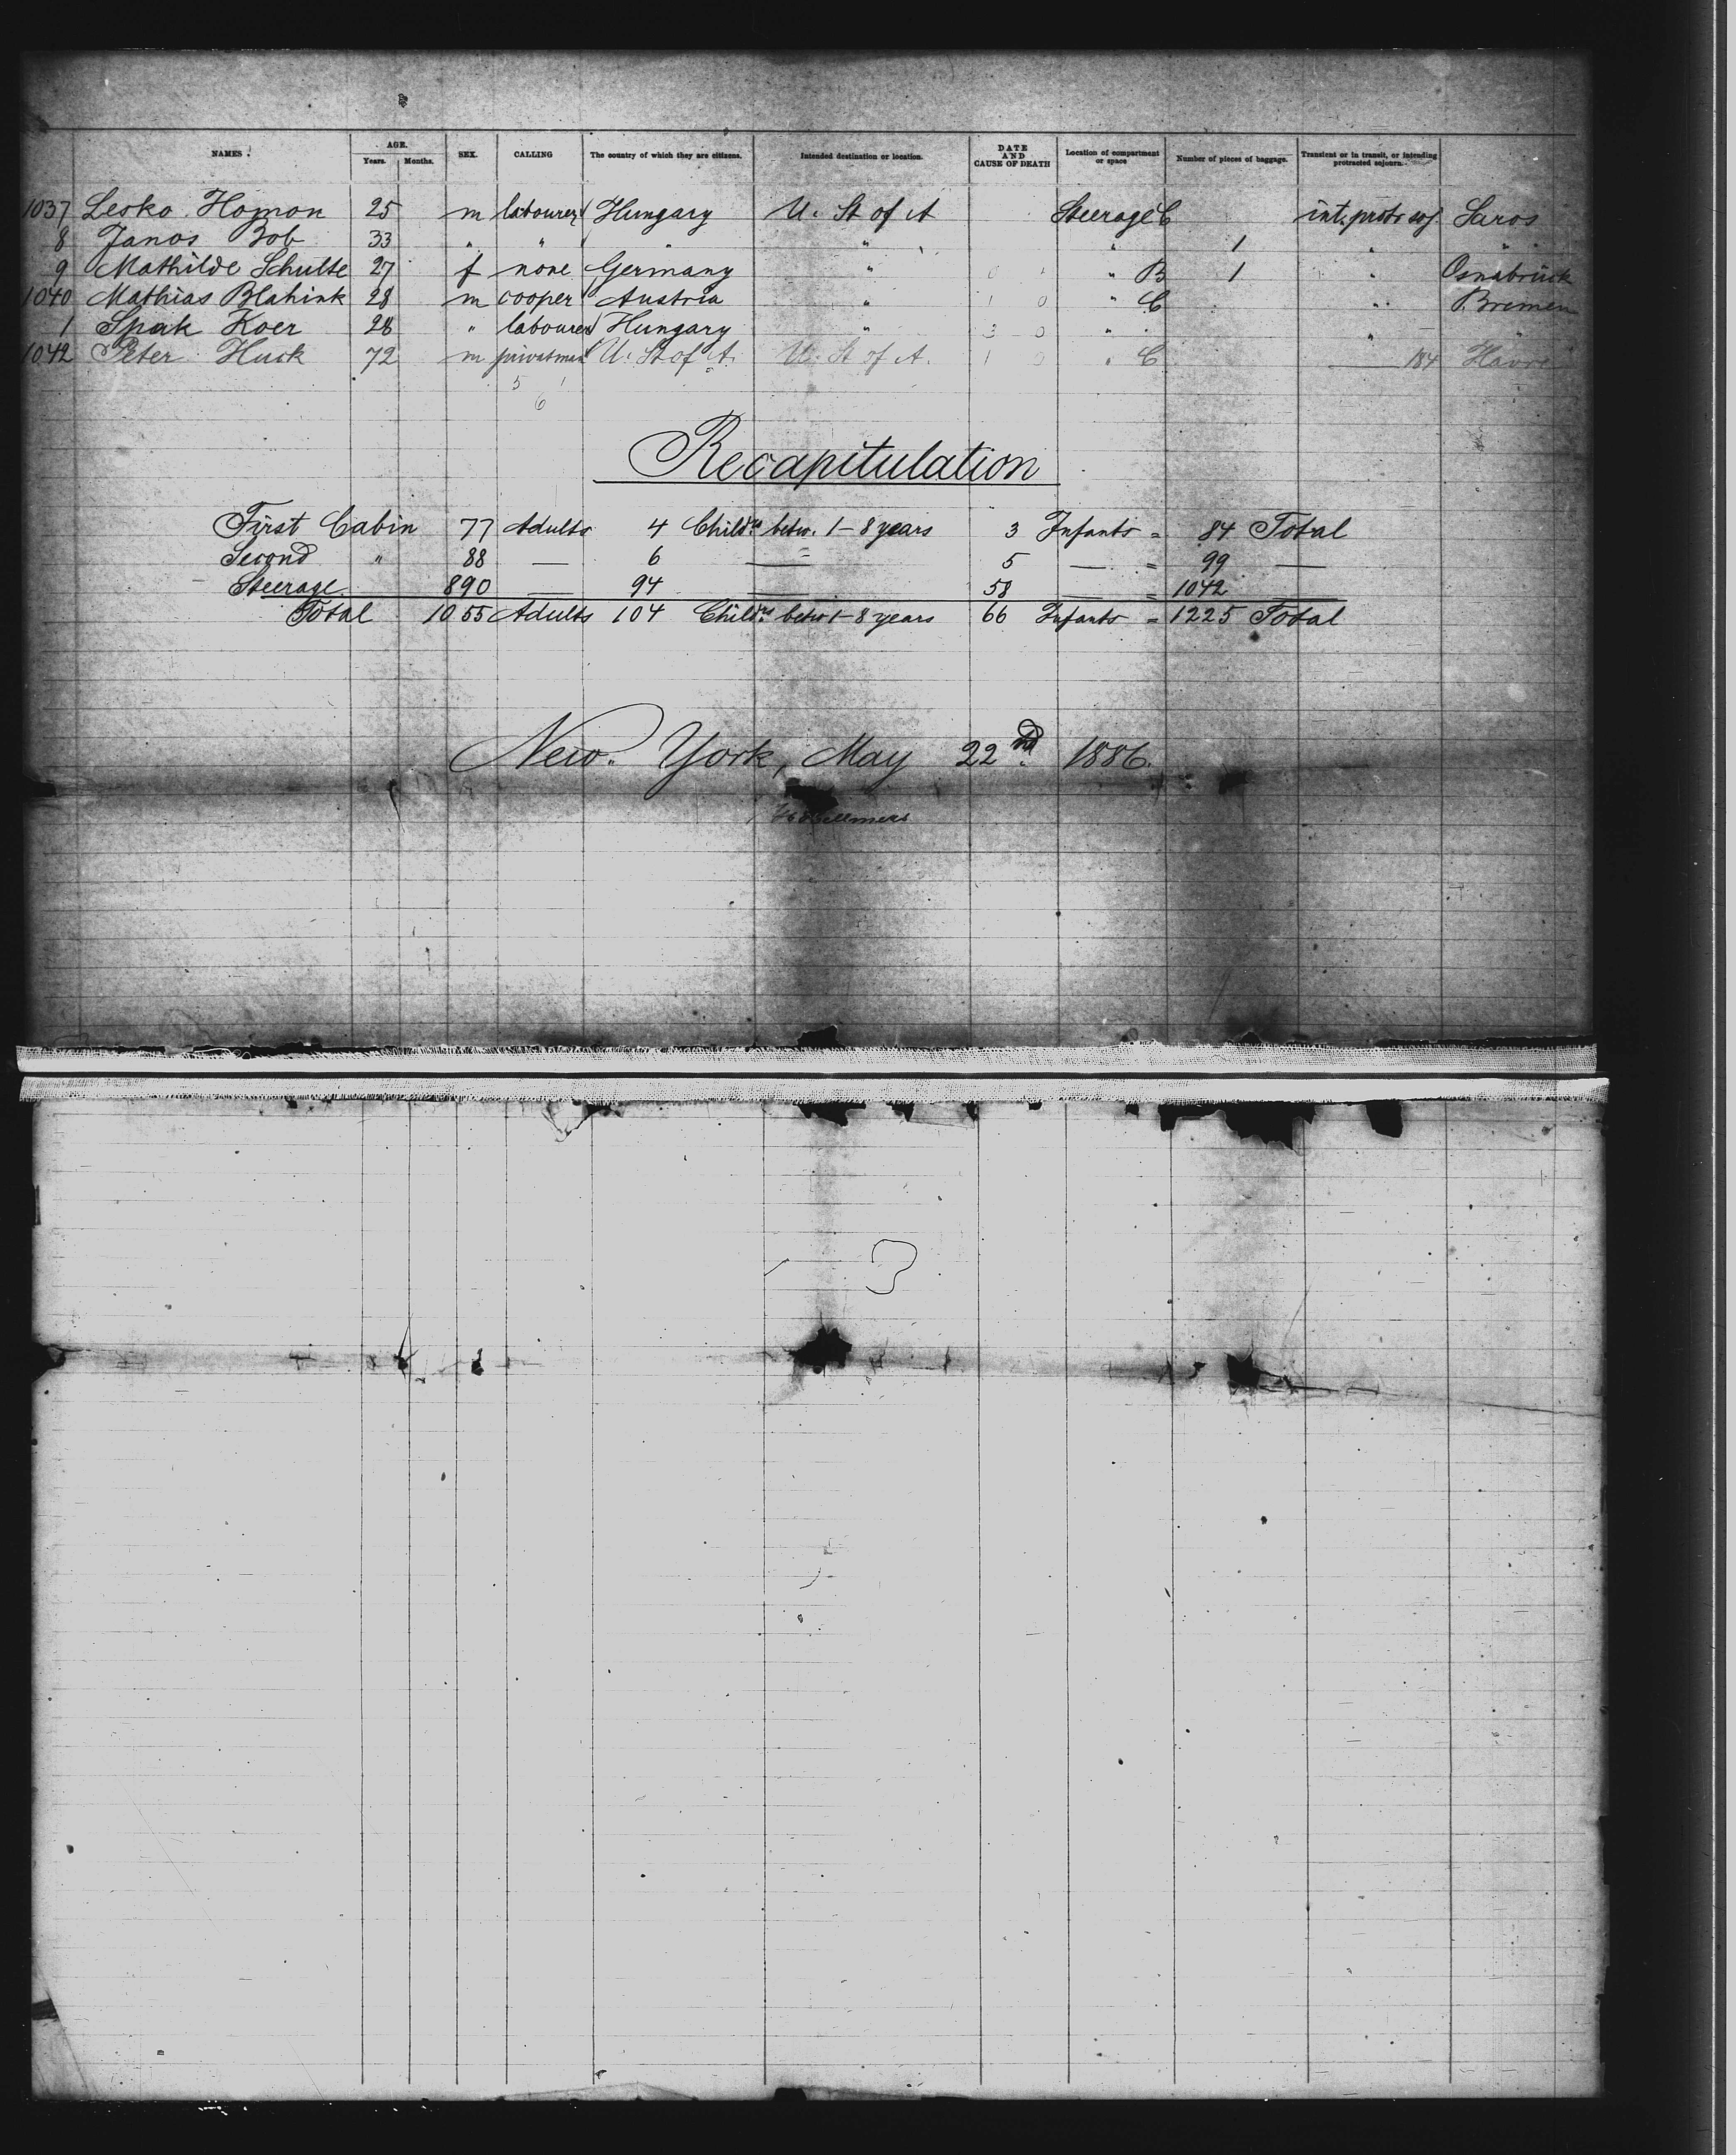 NAMES. AGE. Years. Months. SEX. CALLING The country of which they are citizens. Intended destination or location. DATE AND CAUSE OF DEATH Location of compartment or space Number of pieces of baggage. Transient or in transit, or intending protracted sojourn.
1037 Lesko Homon 25 m labourer Hungary U. St of A Steerage C int. protr soj. Saros
8 Janos Bob 33 " " " " " 1 " "
9 Mathilde Schulte 27 f none Germany " " B 1 " Osnabrück
1040 Mathias Blahink 28 m cooper Austria " 1 0 " C " Bremen
1 Spak Koer 28 " labourer Hungary " 3 0 " " " "
1042 Peter Huck 72 m privatman U. St of A. U. St of A. 1 0 " C 184 Havre
5 1
6
Recapitulation
First Cabin 77 Adults 4 Childrs betw. 1-8 years 3 Infants = 84 Total
Second " 88 — 6 — 5 — = 99 —
Steerage 890 — 94 — 58 — = 1042 —
Total 1055 Adults 104 Childrs betw 1-8 years 66 Infants = 1225 Total
New York, May 22nd 1886.